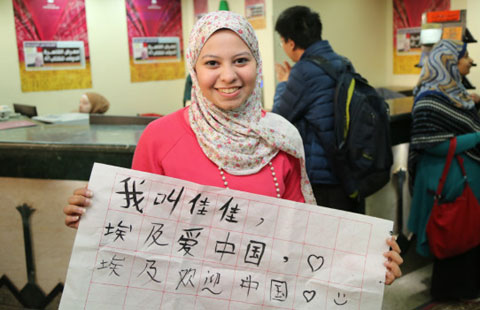 我叫佳佳，
埃及爱中国，♡
埃及欢迎中国♡☺